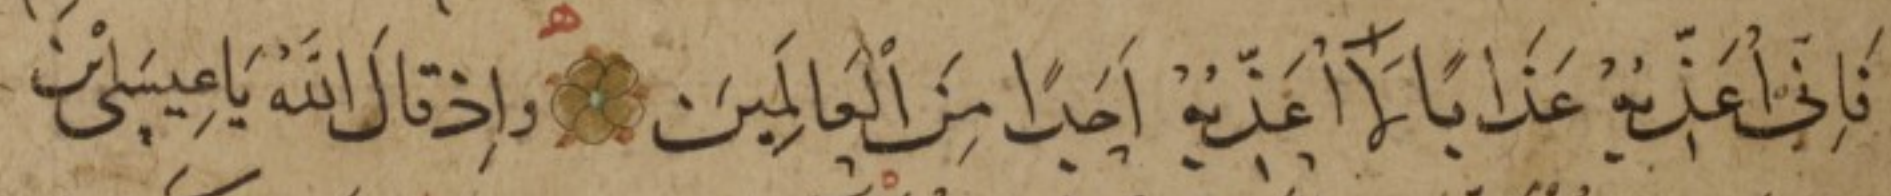 فَاِنِّىٓ اُعَذِّبُهُ عَذَابًا لَٓا اُعَذِّبُهُ اَحَدًا مِنَ الْعَالَمِينَ ه وَاِذْ قَالَ اللَّهُ يَا عِيسَى ابْنَ